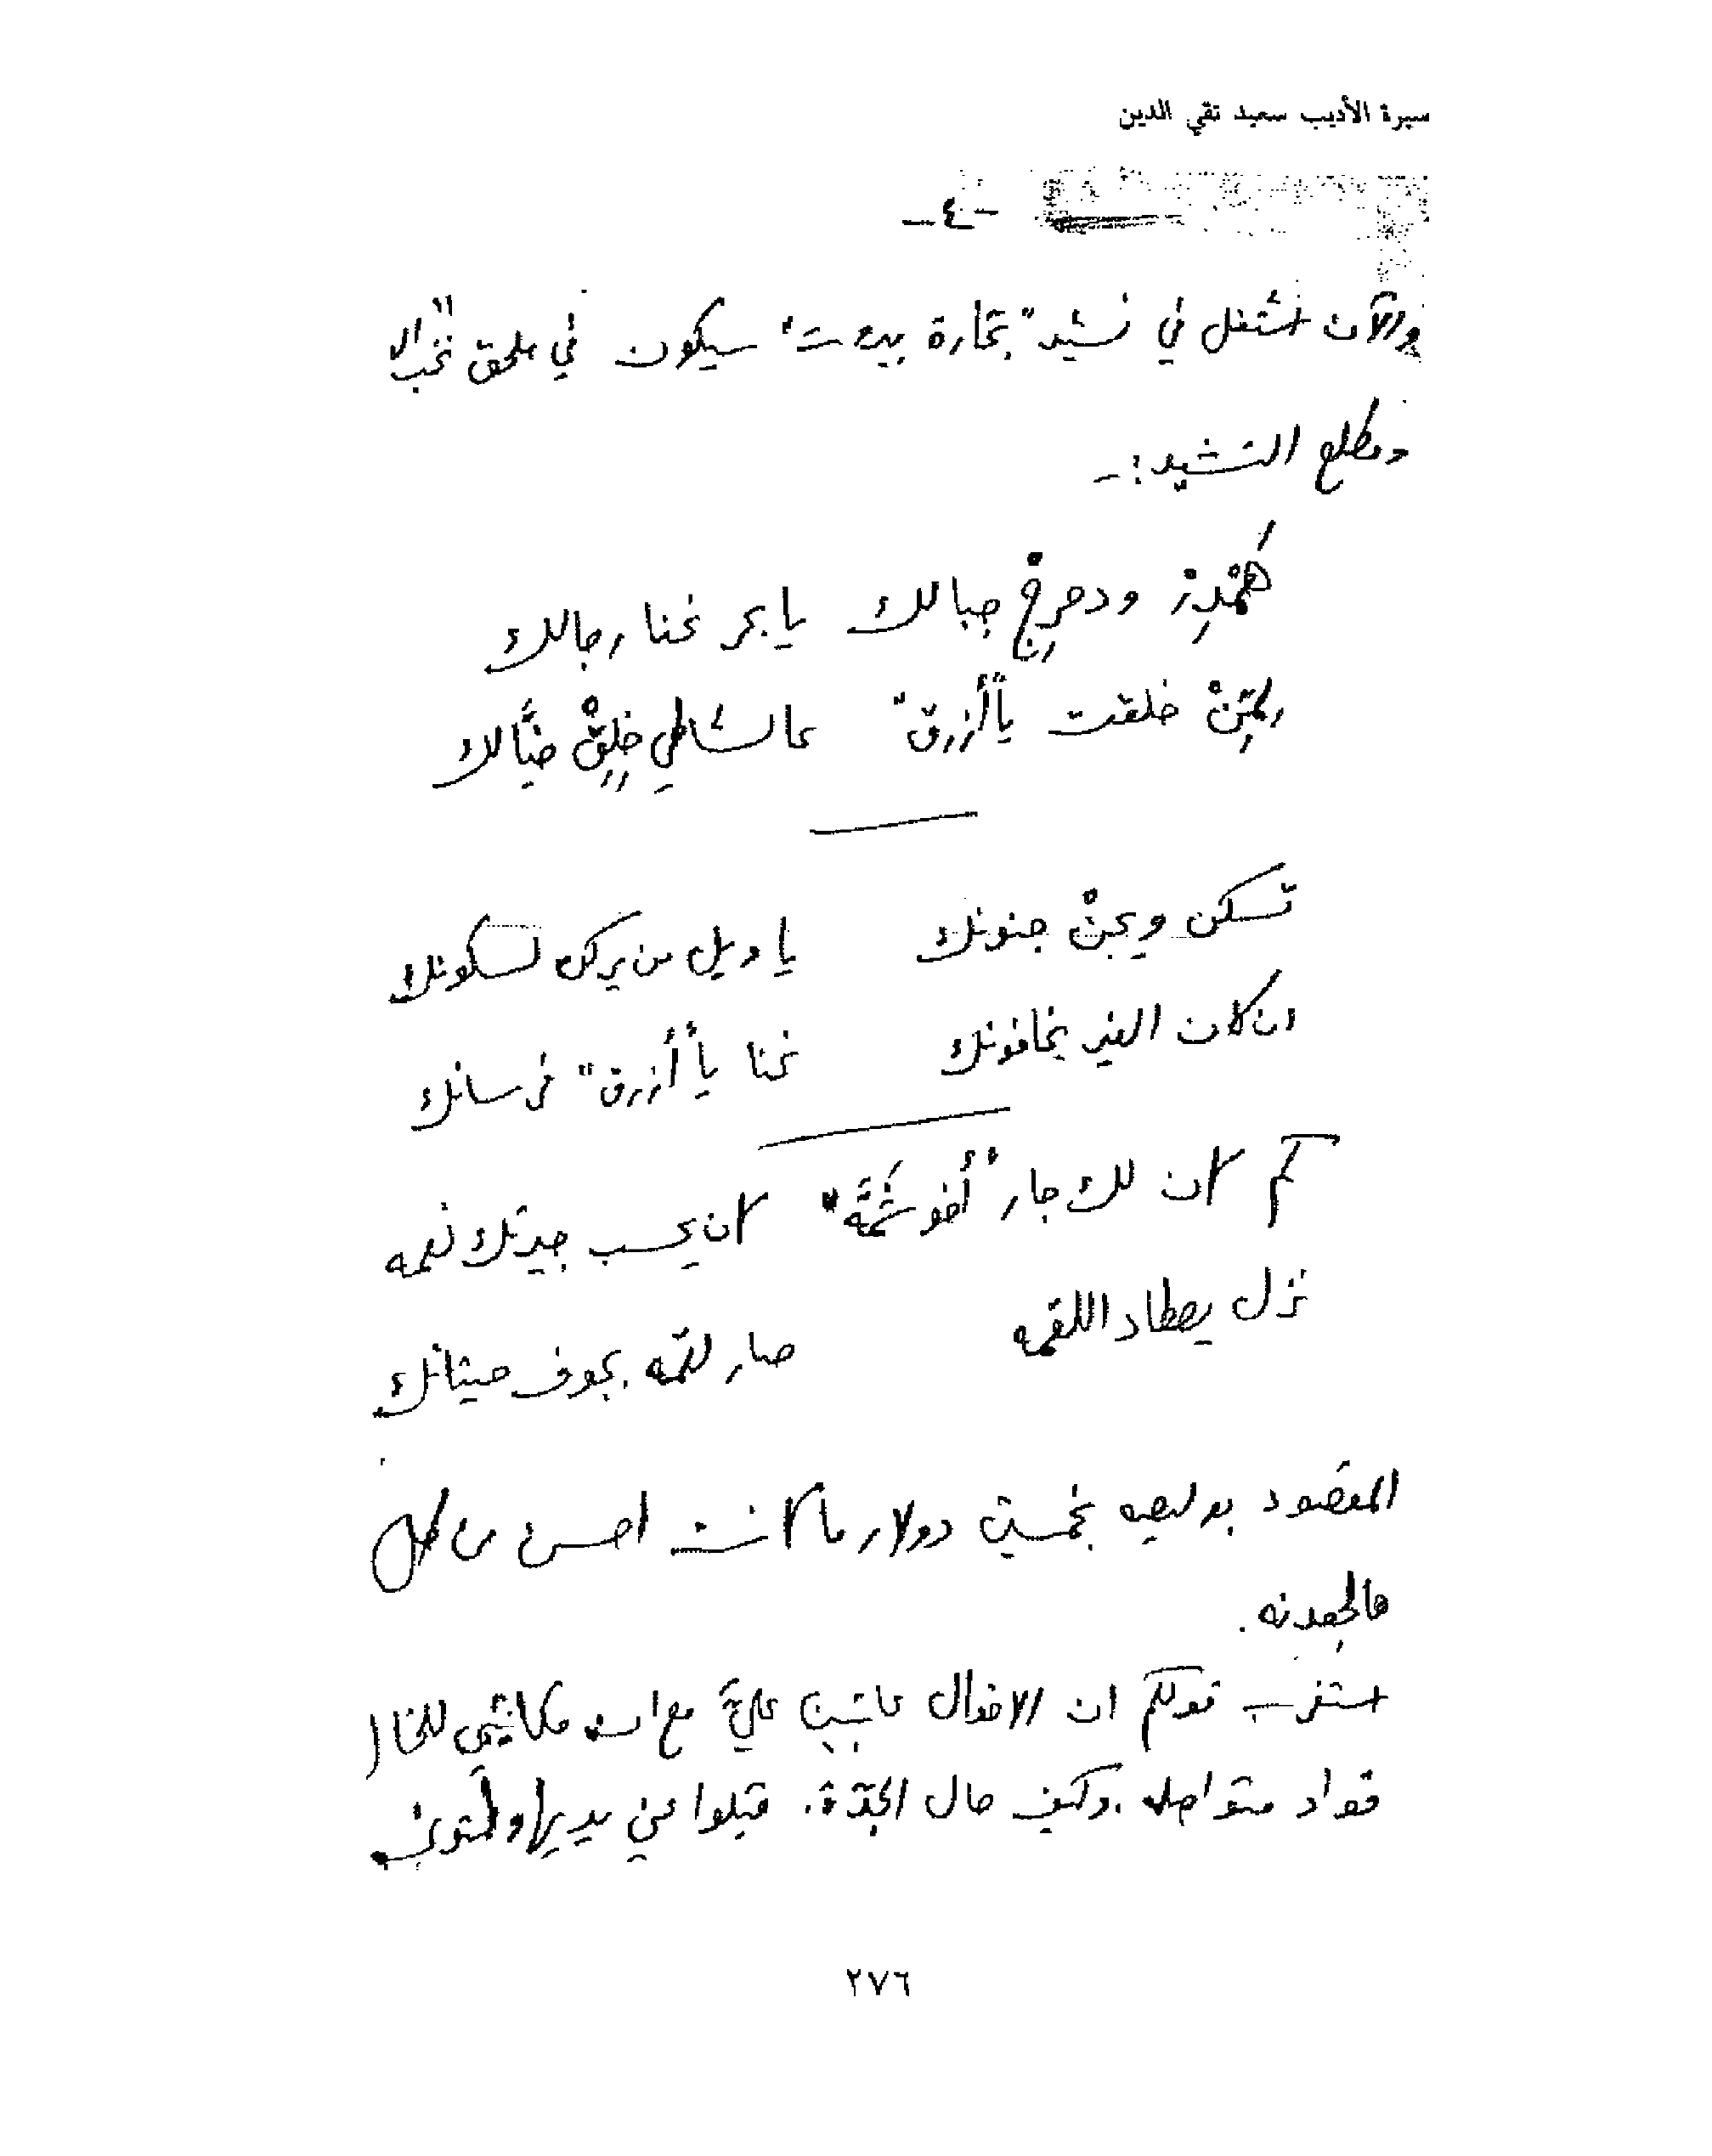 سيرة الأديب سعيد تقي الدين
-٤-
والآن اشتغل في نشيد "بحّارة بيروت" سيكون في ملحق نخب ال
ومطلع النشيد :-
هَمْدِرْ ودحرِجْ جبالك يا بحر نحنا رجالك
لمِّنْ خلقت يا "أزرق" عالشاطي خِلِقْ خيَّالك
تسكن ويجنْ جنونك يا ويل من يركن لسكونك
ان كان الغير يخافونك نحنا يا "أزرق" فرسانك
كم كان لك جار "أخو شَمَّه" كان يحسب جيرتك نعمه
نزل يصطاد اللقمه صار لقمه بجوف حيتانك
المقصود بوليصه بخمسين دولار ما كانت احسن من كل
هالجعدنه .
استغرب قولكم ان الاخوال عاتبين عليَّ مع ان مكاتيبي للخال
فؤاد متواصله . وكيف حال الجدّة . قبلوا عني يديها و
٢٧٦